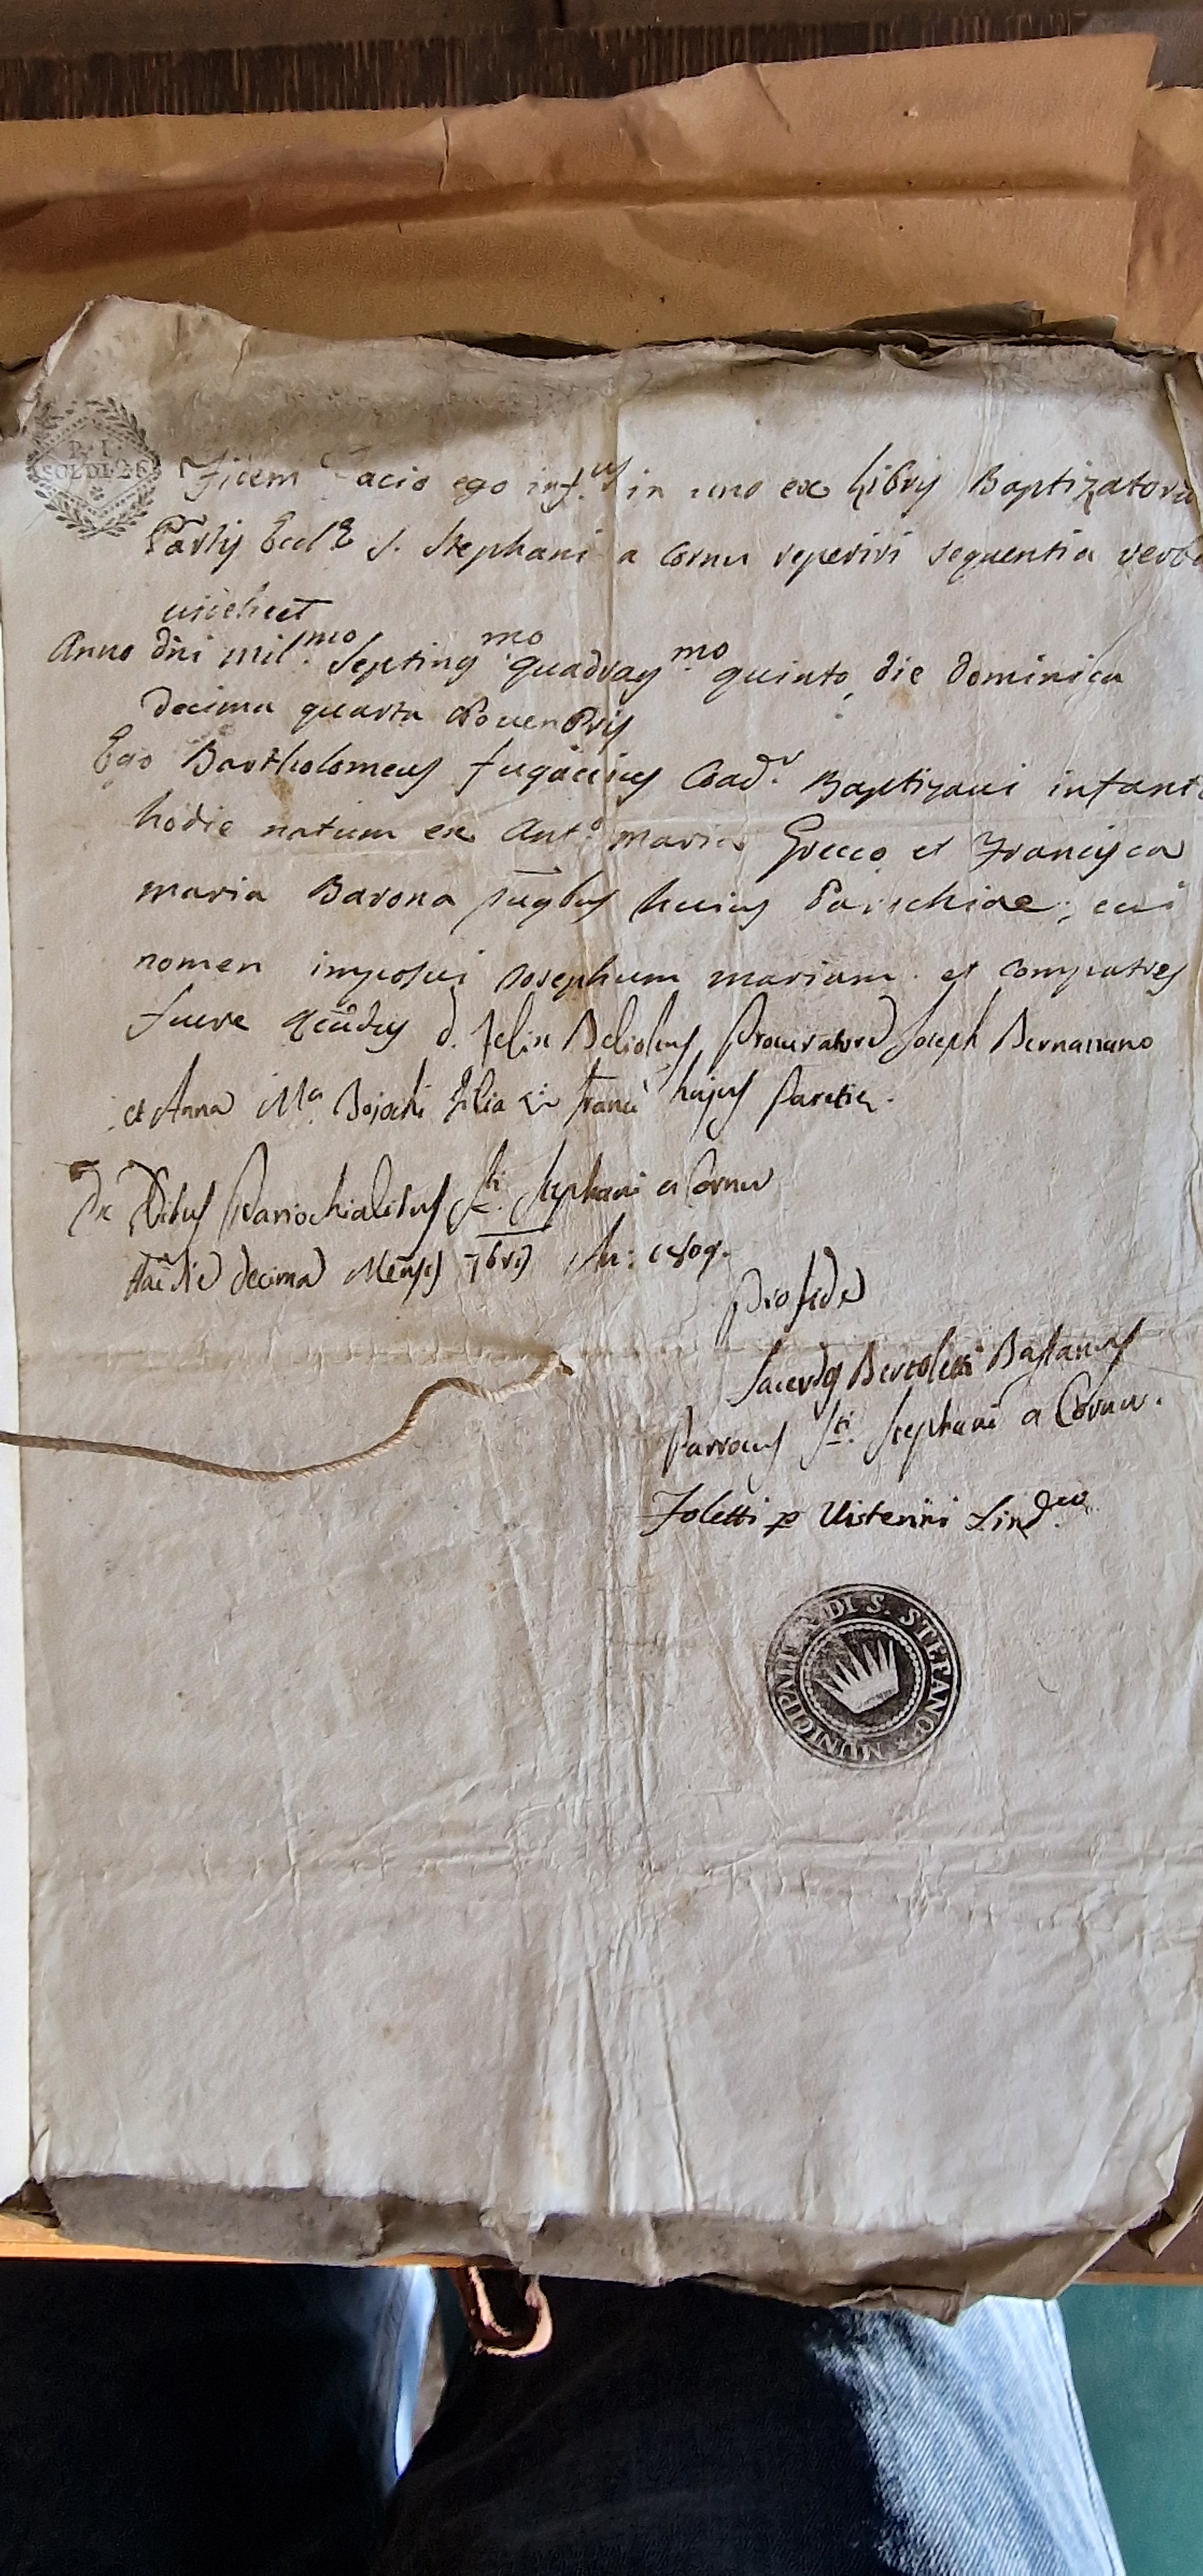 R. I.
SOLDI 26
Fidem Facio ego inf.us in uno ex Libris Baptizatoru
Parlis Eccl.e S. Stephani a Cornu reperiri sequentia verba
videlicet
Anno dni mil.mo Septing.mo quadrag.mo quinto, die dominica
decima quarta Novenbris
Ego Bartholomeus fugaccius Coad.r Baptizavi infant
hodie natum ex Ant.o maria Grecco et Francisca
maria Barona jugbus huius Parochiae; cui
nomen imposui Josephum mariam. et compatres
fuere d. Felix Procuratore Joseph
et Anna M.a filia Franci hujus
Ex Parrochialibus S.ti Stephani a Cornu
hac die decima Mensis 7bris An:
Pro fide
Sacerdos Bertoletti
Parrocus S.ti Stephani a Cornu.
Foletti p Visterini Sind.co
MUNICIPALITÀ DI S. STEFANO